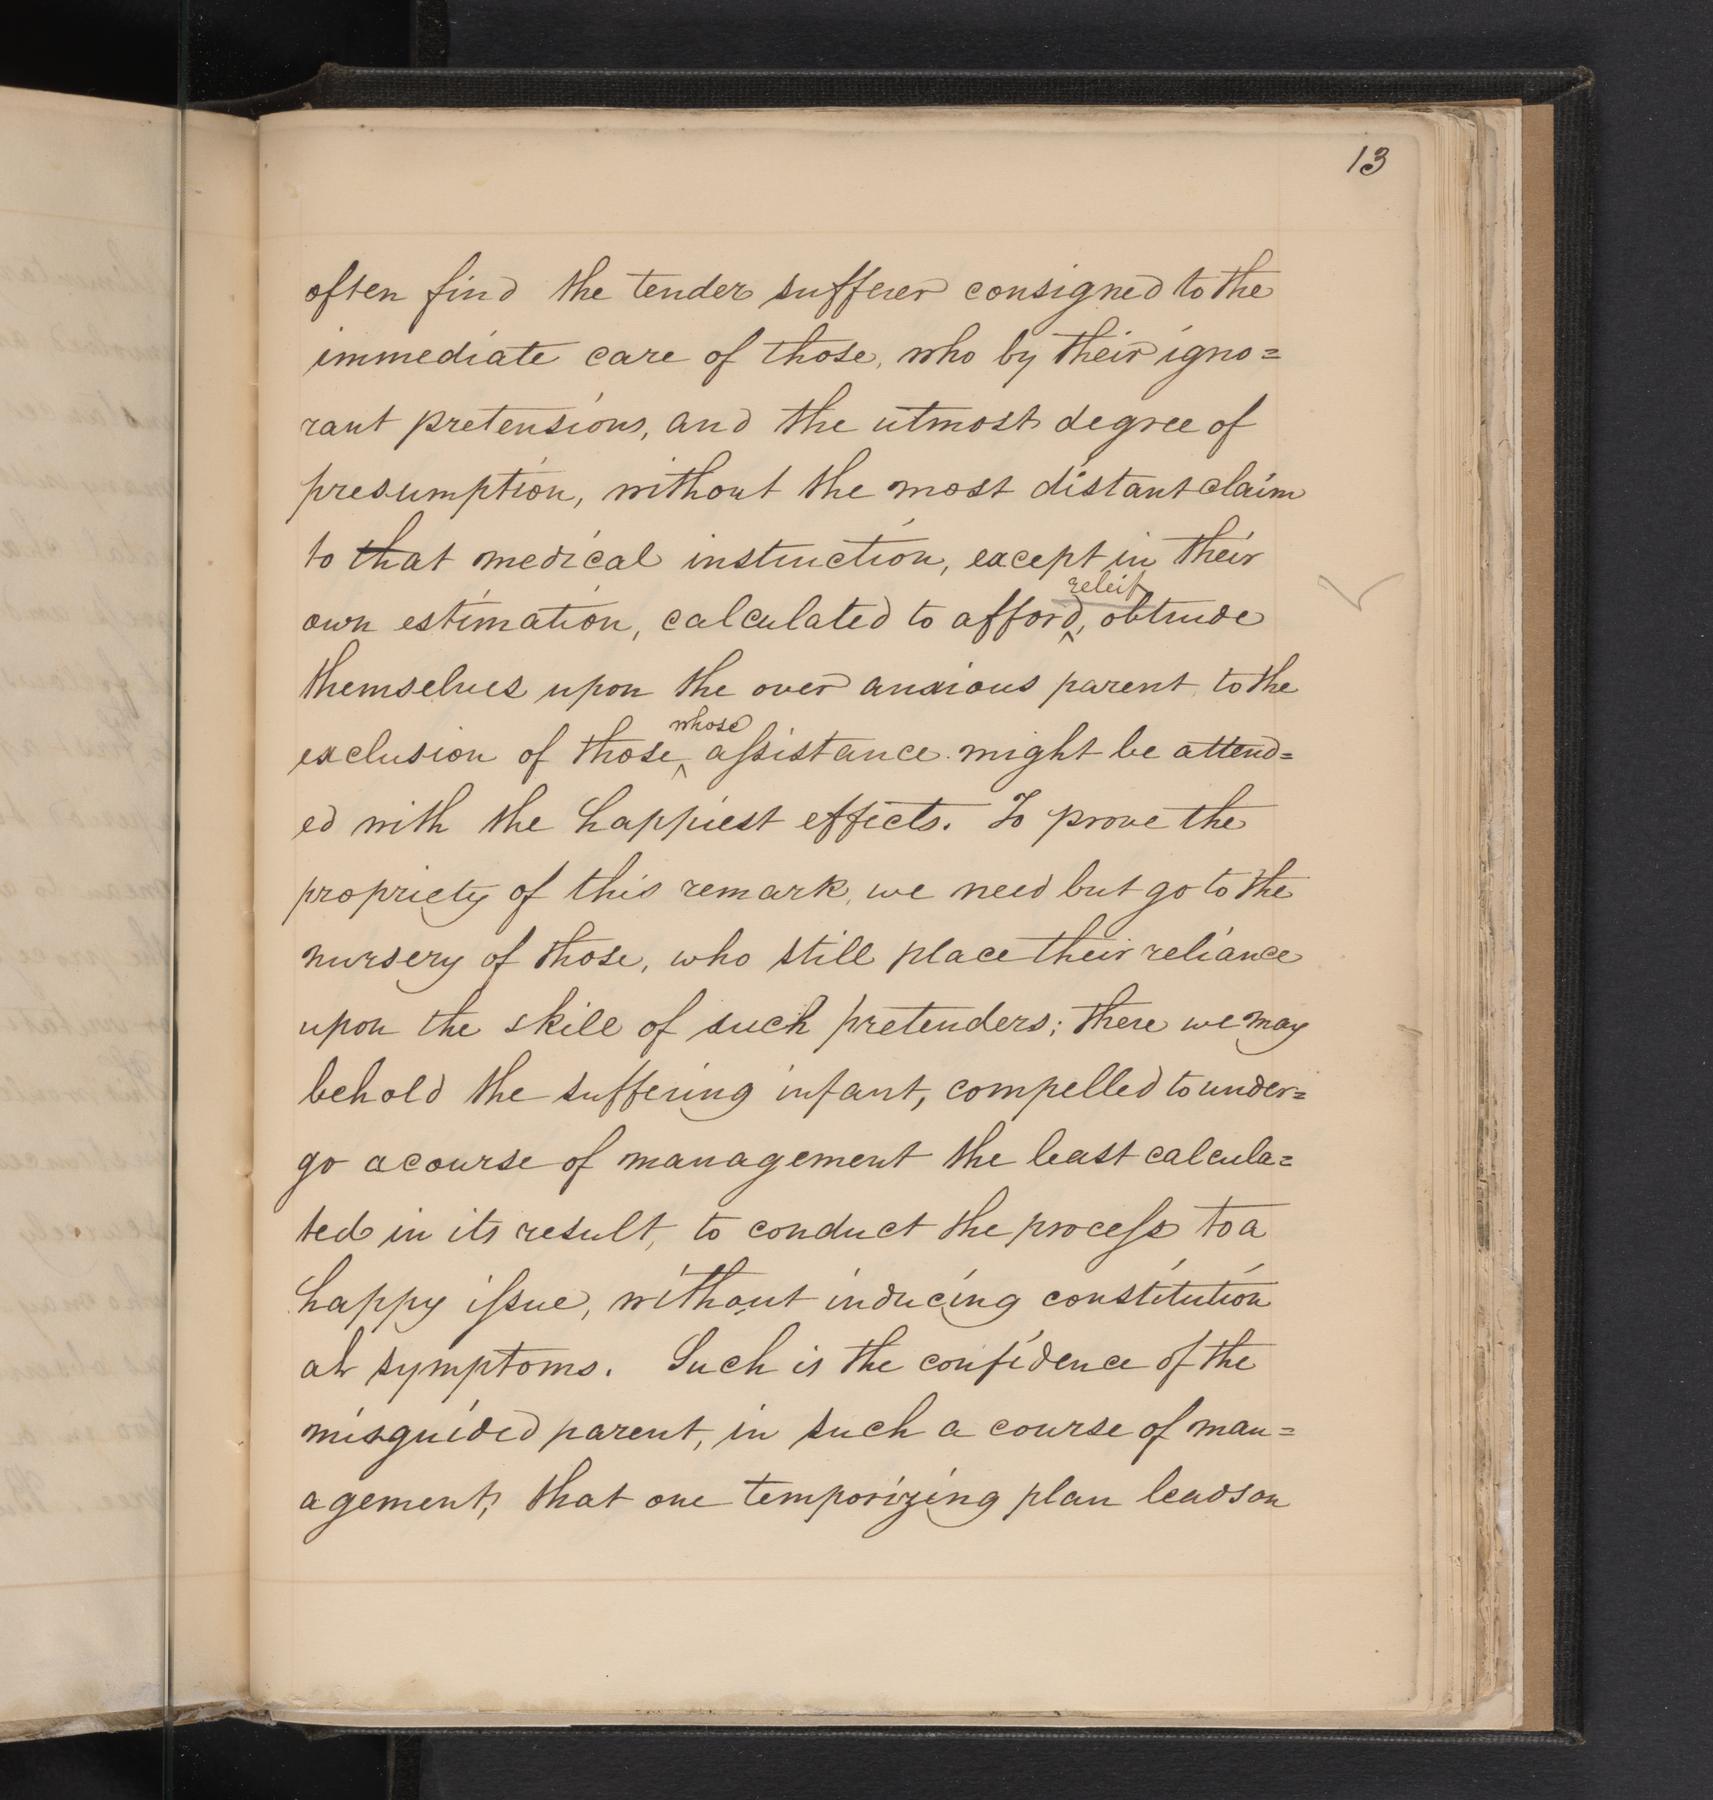 13
often find the tender sufferer consigned to the
immediate care of those, who by their igno=
rant pretensions, and the utmost degree of
presumption, without the most distant claim
to that medical instruction, except in their
releif
own estimation, calculated to afford, obtrude
themselves upon the over anxious parent to the
whose
exclusion of those assistance might be attend=
ed with the happiest effects. To prove the
propriety of this remark, we need but go to the
nursery of those, who still place their reliance
upon the skill of such pretenders; there we may
behold the suffering infant, compelled to under=
go a course of management the least calcula=
ted in its result, to conduct the process to a
happy issue, without inducing constitution
al symptoms. Such is the confidence of the
misguided parent, in such a course of man=
agement, that one temporizing plan leads on